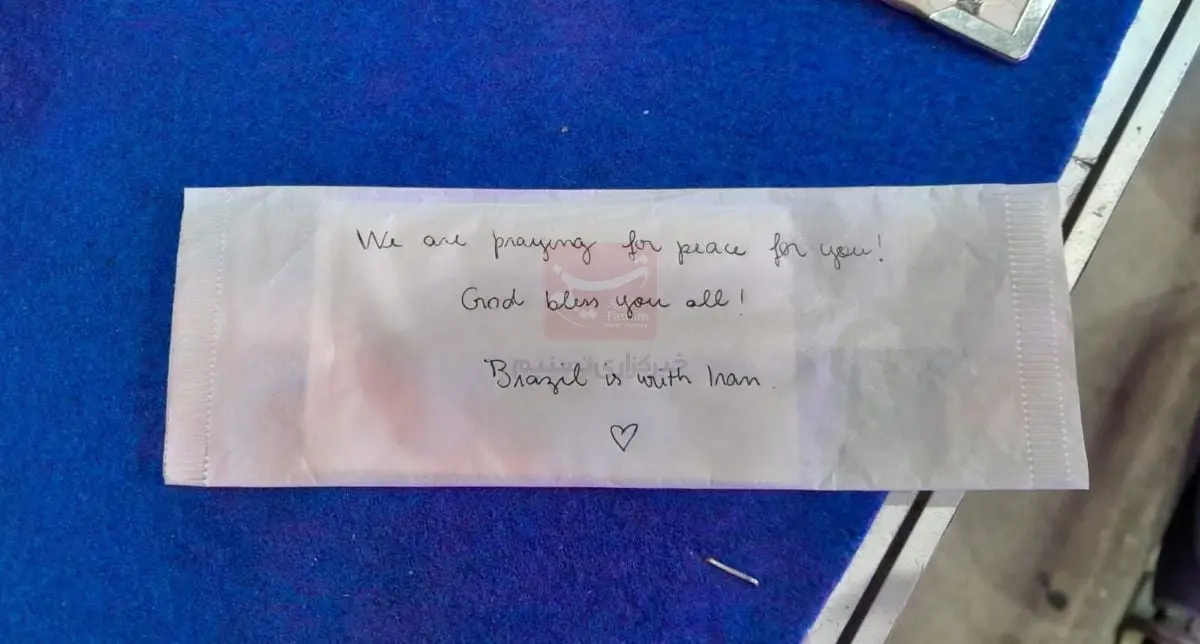 We are praying for peace for you!
God bless you all!
Tasnim
خبرگزاری تسنیم
Brazil is with Iran.